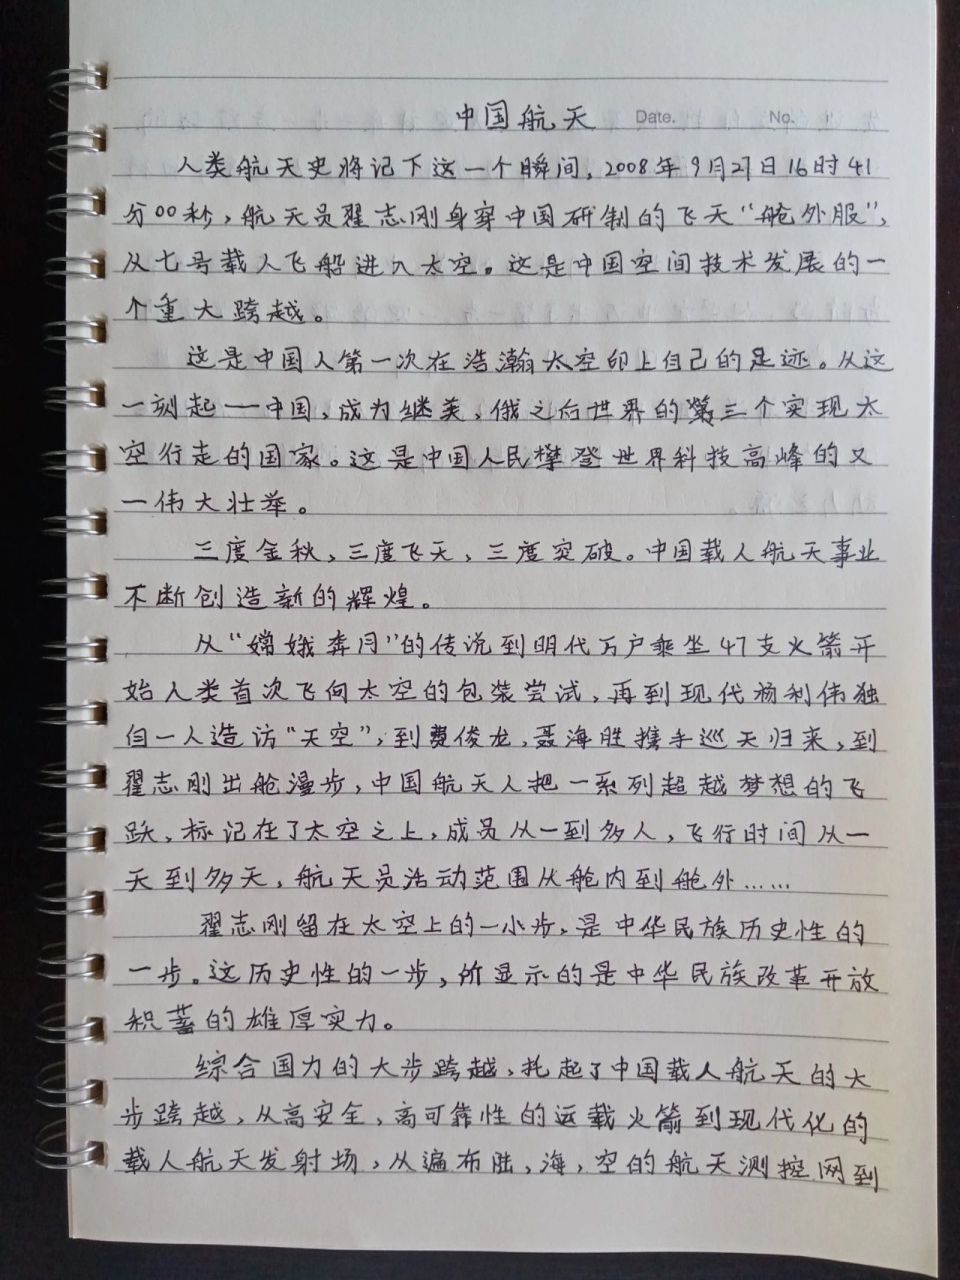 中国航天 Date. No.
人类航天史将记下这一个瞬间，2008年9月27日16时41
分00秒，航天员翟志刚身穿中国研制的飞天“舱外服”，
从七号载人飞船进入太空。这是中国空间技术发展的一
个重大跨越。
这是中国人第一次在浩瀚太空印上自己的足迹。从这
一刻起——中国，成为继美，俄之后世界的第三个实现太
空行走的国家。这是中国人民攀登世界科技高峰的又
一伟大壮举。
三度金秋，三度飞天，三度突破。中国载人航天事业
不断创造新的辉煌。
从“嫦娥奔月”的传说到明代万户乘坐47支火箭开
始人类首次飞向太空的包装尝试，再到现代杨利伟独
自一人造访“天空”，到费俊龙，聂海胜携手巡天归来，到
翟志刚出舱漫步，中国航天人把一系列超越梦想的飞
跃，标记在了太空之上，成员从一到多人，飞行时间从一
天到多天，航天员活动范围从舱内到舱外……
翟志刚留在太空上的一小步，是中华民族历史性的
一步。这历史性的一步，所显示的是中华民族改革开放
积蓄的雄厚实力。
综合国力的大步跨越，托起了中国载人航天的大
步跨越，从高安全，高可靠性的运载火箭到现代化的
载人航天发射场，从遍布陆，海，空的航天测控网到